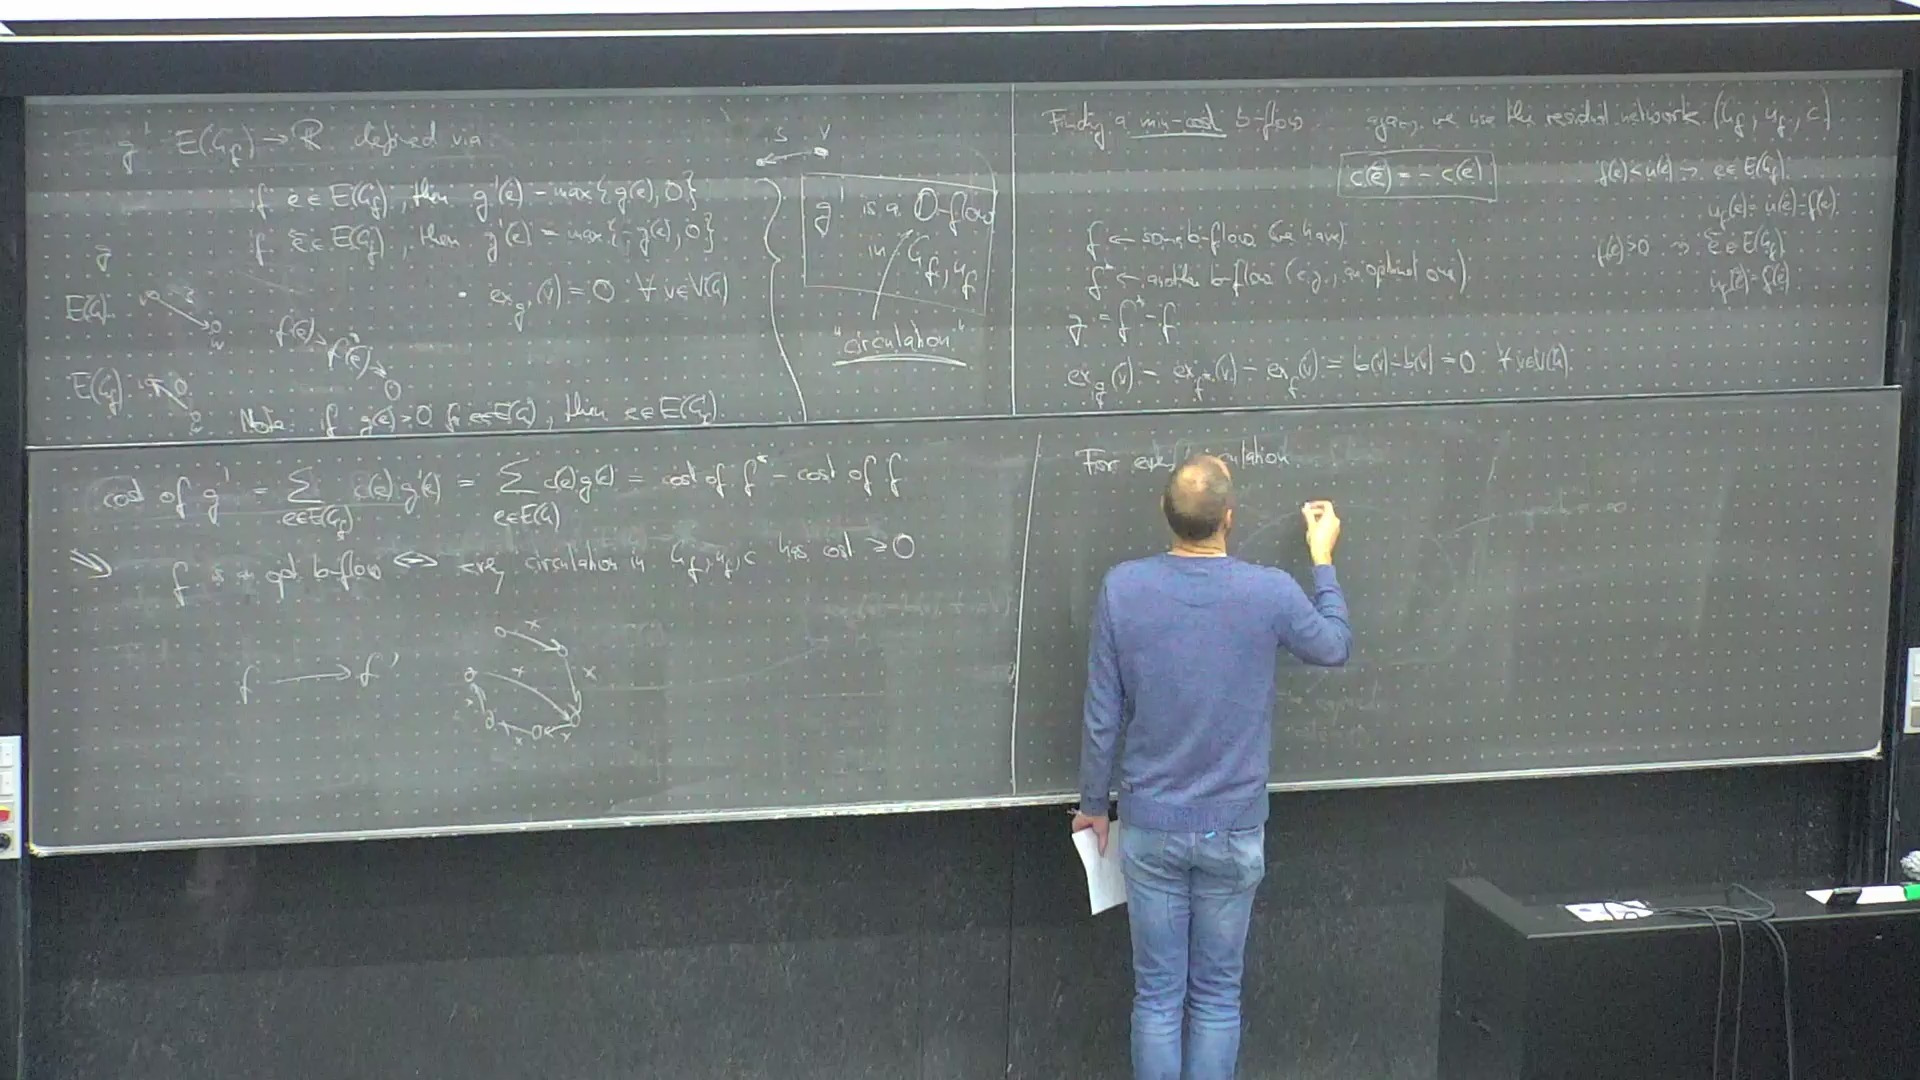 g' E(G_f) → ℝ defined via
if e ∈ E(G_f), then g'(e) = max{g(e), 0}
if ⃖e ∈ E(G_f), then g'(⃖e) = max{-g(e), 0}
g
• ex_g'(v) = 0 ∀ v ∈ V(G)
E(G)
v
w
f(e)
f*(e)
0
E(G_f)
Note: if g(e) > 0 for e ∈ E(G), then e ∈ E(G_f)
5 v
g' is a 0-flow
in G_f, u_f
"circulation"
Finding a min-cost b-flow again, we use the residual network (G_f, u_f, c)
c(⃖e) = -c(e)
f(e) < u(e) → e ∈ E(G_f)
u_f(e) = u(e) - f(e)
f(e) > 0 → ⃖e ∈ E(G_f)
u_f(⃖e) = f(e)
f ← some b-flow (we have)
f* ← another b-flow (e.g., an optimal one)
g := f* - f
ex_g(v) = ex_f*(v) - ex_f(v) = b(v) - b(v) = 0 ∀ v ∈ V(G)
cost of g' = Σ_{e∈E(G_f)} c(e) g'(e) = Σ_{e∈E(G)} c(e) g(e) = cost of f* - cost of f
⇒ f is an opt b-flow ⟷ every circulation in G_f, u_f, c has cost ≥ 0
f ⟶ f'
x
x
x
x
x
For